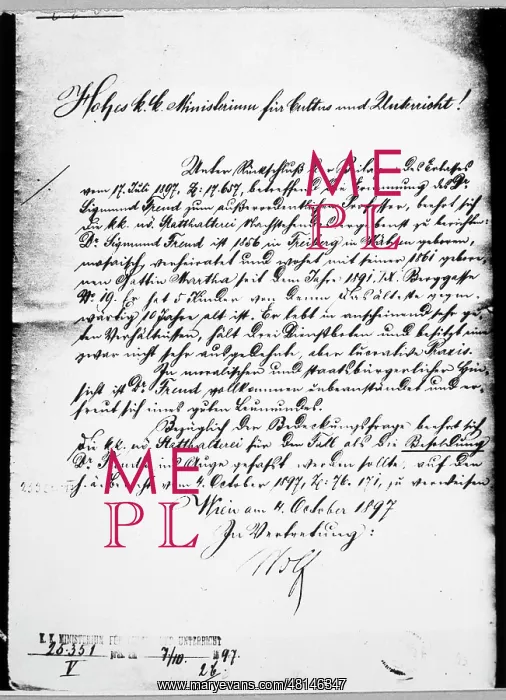 Hohes k. k. Ministerium für Cultus und Unterricht!
Unter Rückschluß der Beilagen des Erlasses
vom 17. Juli 1897, Z: 17.637, betreffend die Ernennung des Dr.
Sigmund Freud zum außerordentlichen Professor, beehrt sich
die k.k. nö. Statthalterei Nachstehendes ergebenst zu berichten:
Dr. Sigmund Freud ist 1856 in Freiberg in Mähren geboren,
mosaisch, verheiratet und wohnt mit seiner 1861 gebore-
nen Gattin Martha seit dem Jahre 1891, IX. Berggasse
No. 19. Er hat 6 Kinder von denen das älteste gegen-
wärtig 10 Jahre alt ist. Er lebt in anscheinend sehr gu-
ten Verhältnissen, hält drei Dienstboten und besitzt eine
zwar nicht sehr ausgedehnte, aber lucrative Praxis.
In moralischer und staatsbürgerlicher Hin-
sicht ist Dr. Freud vollkommen unbeanständet und er-
freut sich eines guten Leumundes.
Bezüglich der Bedeckungsfrage beehrt sich
die k.k. nö. Statthalterei für den Fall als die Besoldung
Dr. Freud ins Auge gefaßt werden sollte, auf den
h.ä. Bericht vom 4. October 1897, Z: 76.171, zu verweisen
Wien am 4. October 1897
In Vertretung:
Wolf
K. K. MINISTERIUM FÜR CULTUS UND UNTERRICHT
25.351 7/10. 97.
V 26
ME
PL
ME
PL
www.maryevans.com/48146347